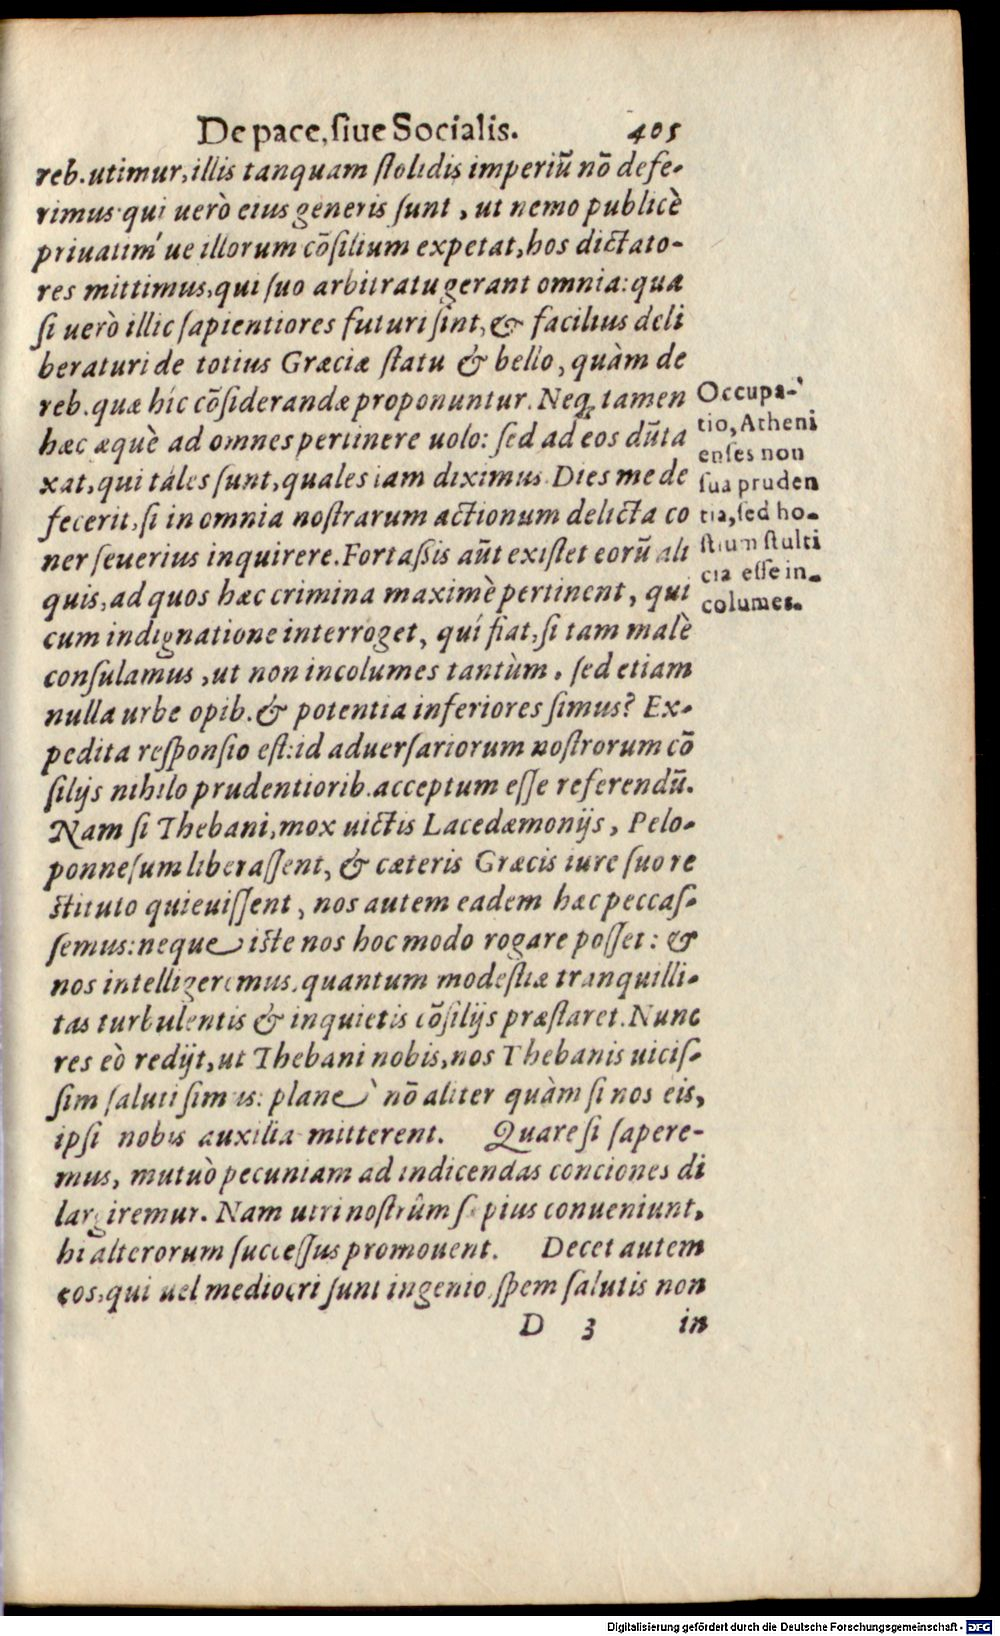 De pace, siue Socialis. 405
reb. utimur, illis tanquam stolidis imperiū nō defe-
rimus qui uerò eius generis sunt, ut nemo publicè
priuatiḿue illorum cōsilium expetat, hos dictato-
res mittimus, qui suo arbitratu gerant omnia: qua
si uerò illic sapientiores futuri sint, & facilius deli
beraturi de totius Græciæ statu & bello, quàm de
reb. quæ híc cōsiderandæ proponuntur. Neq; tamen
hæc æquè ad omnes pertinere uolo: sed ad eos dūta
xat, qui tales sunt, quales iam diximus. Dies me de
fecerit, si in omnia nostrarum actionum delicta co
ner seuerius inquirere. Fortaßis aūt existet eorū ali
quis, ad quos hæc crimina maximè pertinent, qui
cum indignatione interroget, quí fiat, si tam malè
consulamus, ut non incolumes tantùm, sed etiam
nulla urbe opib. & potentia inferiores simus? Ex-
pedita responsio est: id aduersariorum nostrorum cō
silijs nihilo prudentiorib. acceptum esse referendū.
Nam si Thebani, mox uictis Lacedæmonijs, Pelo-
ponnesum liberassent, & cæteris Græcis iure suo re
stituto quieuissent, nos autem eadem hæc peccas-
semus: neque iste nos hoc modo rogare posset: &
nos intelligeremus, quantum modestiæ tranquilli-
tas turbulentis & inquietis cōsilijs præstaret. Nunc
res eò redijt, ut Thebani nobis, nos Thebanis uicis-
sim saluti simus: planè nō aliter quàm si nos eis,
ipsi nobis auxilia mitterent. Quare si sapere-
mus, mutuò pecuniam ad indicendas conciones di
largiremur. Nam utri nostrûm sæpius conueniunt,
hi alterorum successus promouent. Decet autem
eos, qui uel mediocri sunt ingenio, spem salutis non
D 3 in
Occupa-
tio, Atheni
enses non
sua pruden
tia, sed ho-
stium stulti
cia esse in-
columes.
Digitalisierung gefördert durch die Deutsche Forschungsgemeinschaft - DFG